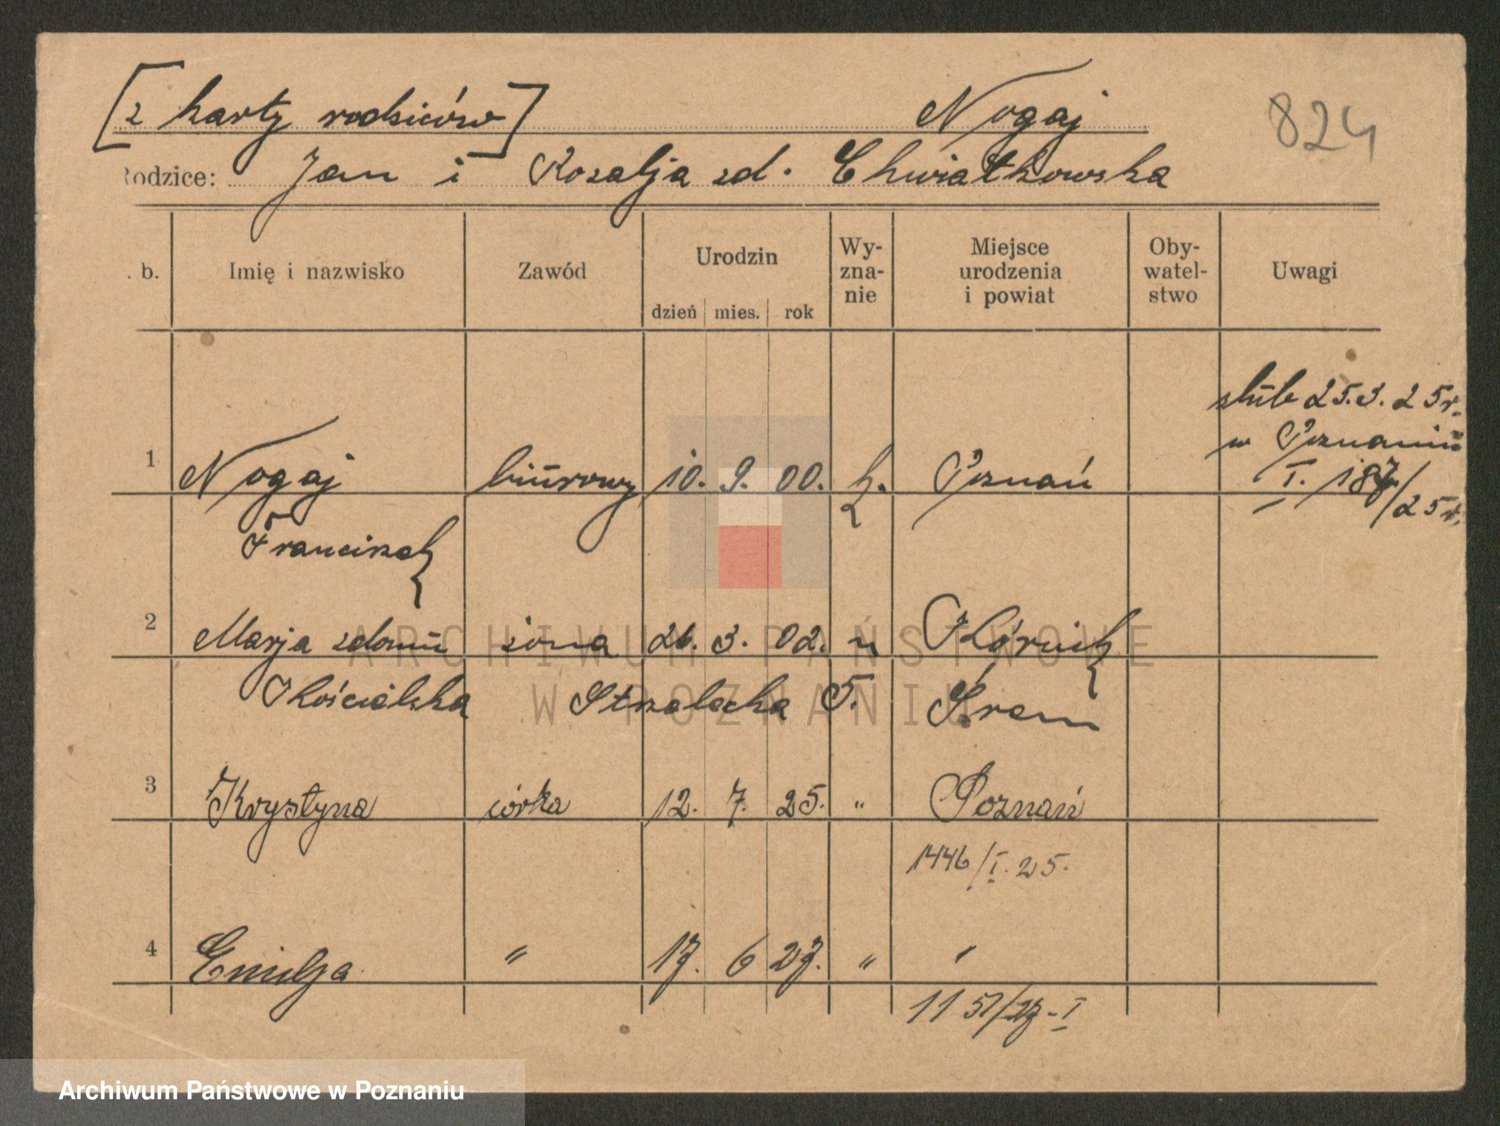 [z karty rodziców] Nogaj 824
Rodzice: Jan i Rozalja zd. Chwiałkowska
. b. Imię i nazwisko Zawód Urodzin dzień mies. rok Wy-zna-nie Miejsce urodzenia i powiat Oby-watel-stwo Uwagi
ślub 25.3.25r.
w Poznaniu
1 Nogaj biurowy 10. 9. 00. k. Poznań I. 187/25r.
Franciszek
2 Marja z domu żona 26. 3. 02. " Kórnik
Kościelska Strzelecka 5. Śrem
3 Krystyna córka 12. 7. 25. " Poznań
1446/I. 25.
4 Emilja " 17. 6 27. " "
1151/27-I
ARCHIWUM PAŃSTWOWE
W POZNANIU
Archiwum Państwowe w Poznaniu